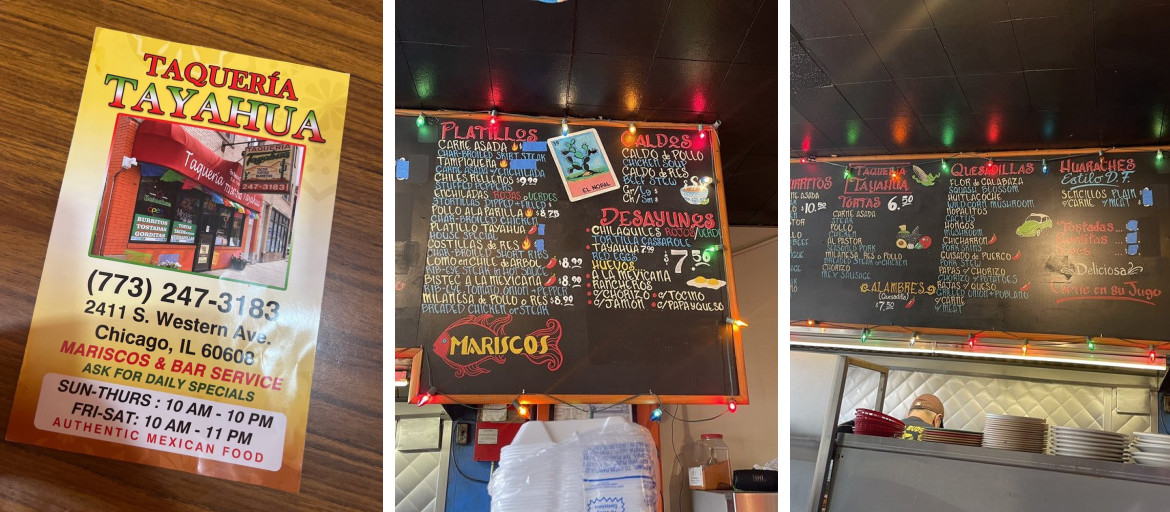 TAQUERÍA
TAYAHUA
Taquería
247-3183
BURRITOS
TOSTADAS
GORDITAS
(773) 247-3183
2411 S. Western Ave.
Chicago, IL 60608
MARISCOS & BAR SERVICE
ASK FOR DAILY SPECIALS
SUN-THURS : 10 AM - 10 PM
FRI-SAT: 10 AM - 11 PM
AUTHENTIC MEXICAN FOOD
PLATILLOS
CARNE ASADA
CHAR-BROILED SKIRT STEAK
TAMPIQUEÑA
CARNE ASADA y ENCHILADA
CHILES RELLENOS $9.99
STUFFED PEPPERS
ENCHILADAS ROJAS o VERDES
POLLO A LA PARILLA $8.25
CHAR-BROILED CHICKEN
PLATILLO TAYAHUA
HOUSE SPECIAL
COSTILLAS de RES
CHAR-BROILED SHORT RIBS
LOMO en CHILE de ARBOL $8.99
RIB-EYE STEAK in HOT SAUCE
BISTEC A LA MEXICANA $8.99
RIB-EYE, TOMATO, ONION & PEPPER
MILANESA de POLLO o RES $8.99
BREADED CHICKEN or STEAK
MARISCOS
EL NOPAL
CALDOS
CALDO de POLLO
CHICKEN SOUP
CALDO de RES
BEEF STEW
DESAYUNOS
CHILAQUILES ROJOS o VERDES
TORTILLA CASSAROLE
HUEVOS
EGGS
$7.50
A LA MEXICANA
RANCHEROS
c/CHORIZO
c/JAMON
c/TOCINO
c/PAPA y QUESO
BURRITOS
$10.50
TAQUERIA
TAYAHUA
TORTAS 6.50
CARNE ASADA
STEAK
POLLO
CHICKEN
AL PASTOR
SEASONED PORK
MILANESA RES o POLLO
BREADED STEAK or CHICKEN
CHORIZO
MEX SAUSAGE
ALAMBRES
(Quesadilla)
$7.50
QUESADILLAS
FLOR de CALABAZA
SQUASH BLOSSOM
HUITLACOCHE
WILD CORN MUSHROOM
NOPALITOS
CACTUS
HONGOS
MUSHROOM
CHICHARRON
PORK SKIN
CUISADO de PUERCO
PORK STEW
PAPAS y CHORIZO
CHORIZO y POTATOES
RAJAS y QUESO
CHEESE, ONION & POBLANO
c/CARNE
w/MEAT
HUARACHES
Estilo D.F.
SENCILLOS PLAIN
c/CARNE w/MEAT
Tostadas
Deliciosa
Carne en su Jugo